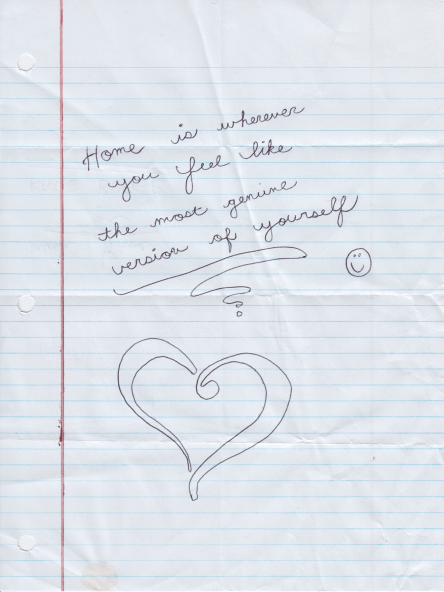 Home is wherever
you feel like
the most genuine
version of yourself